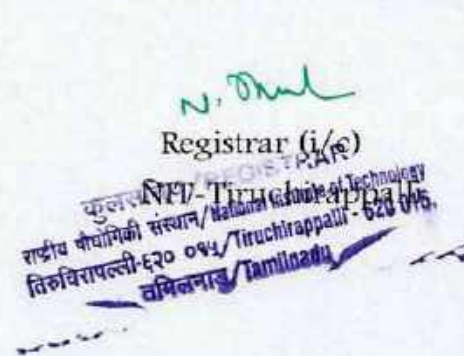 N.
Registrar (i/c)
NIT-Tiruchirappalli
कुलसचिव/REGISTRAR
राष्ट्रीय प्रौद्योगिकी संस्थान/National Institute of Technology
तिरुचिरापल्ली-६२० ०१५/Tiruchirappalli - 620 015.
तमिलनाडु/Tamilnadu